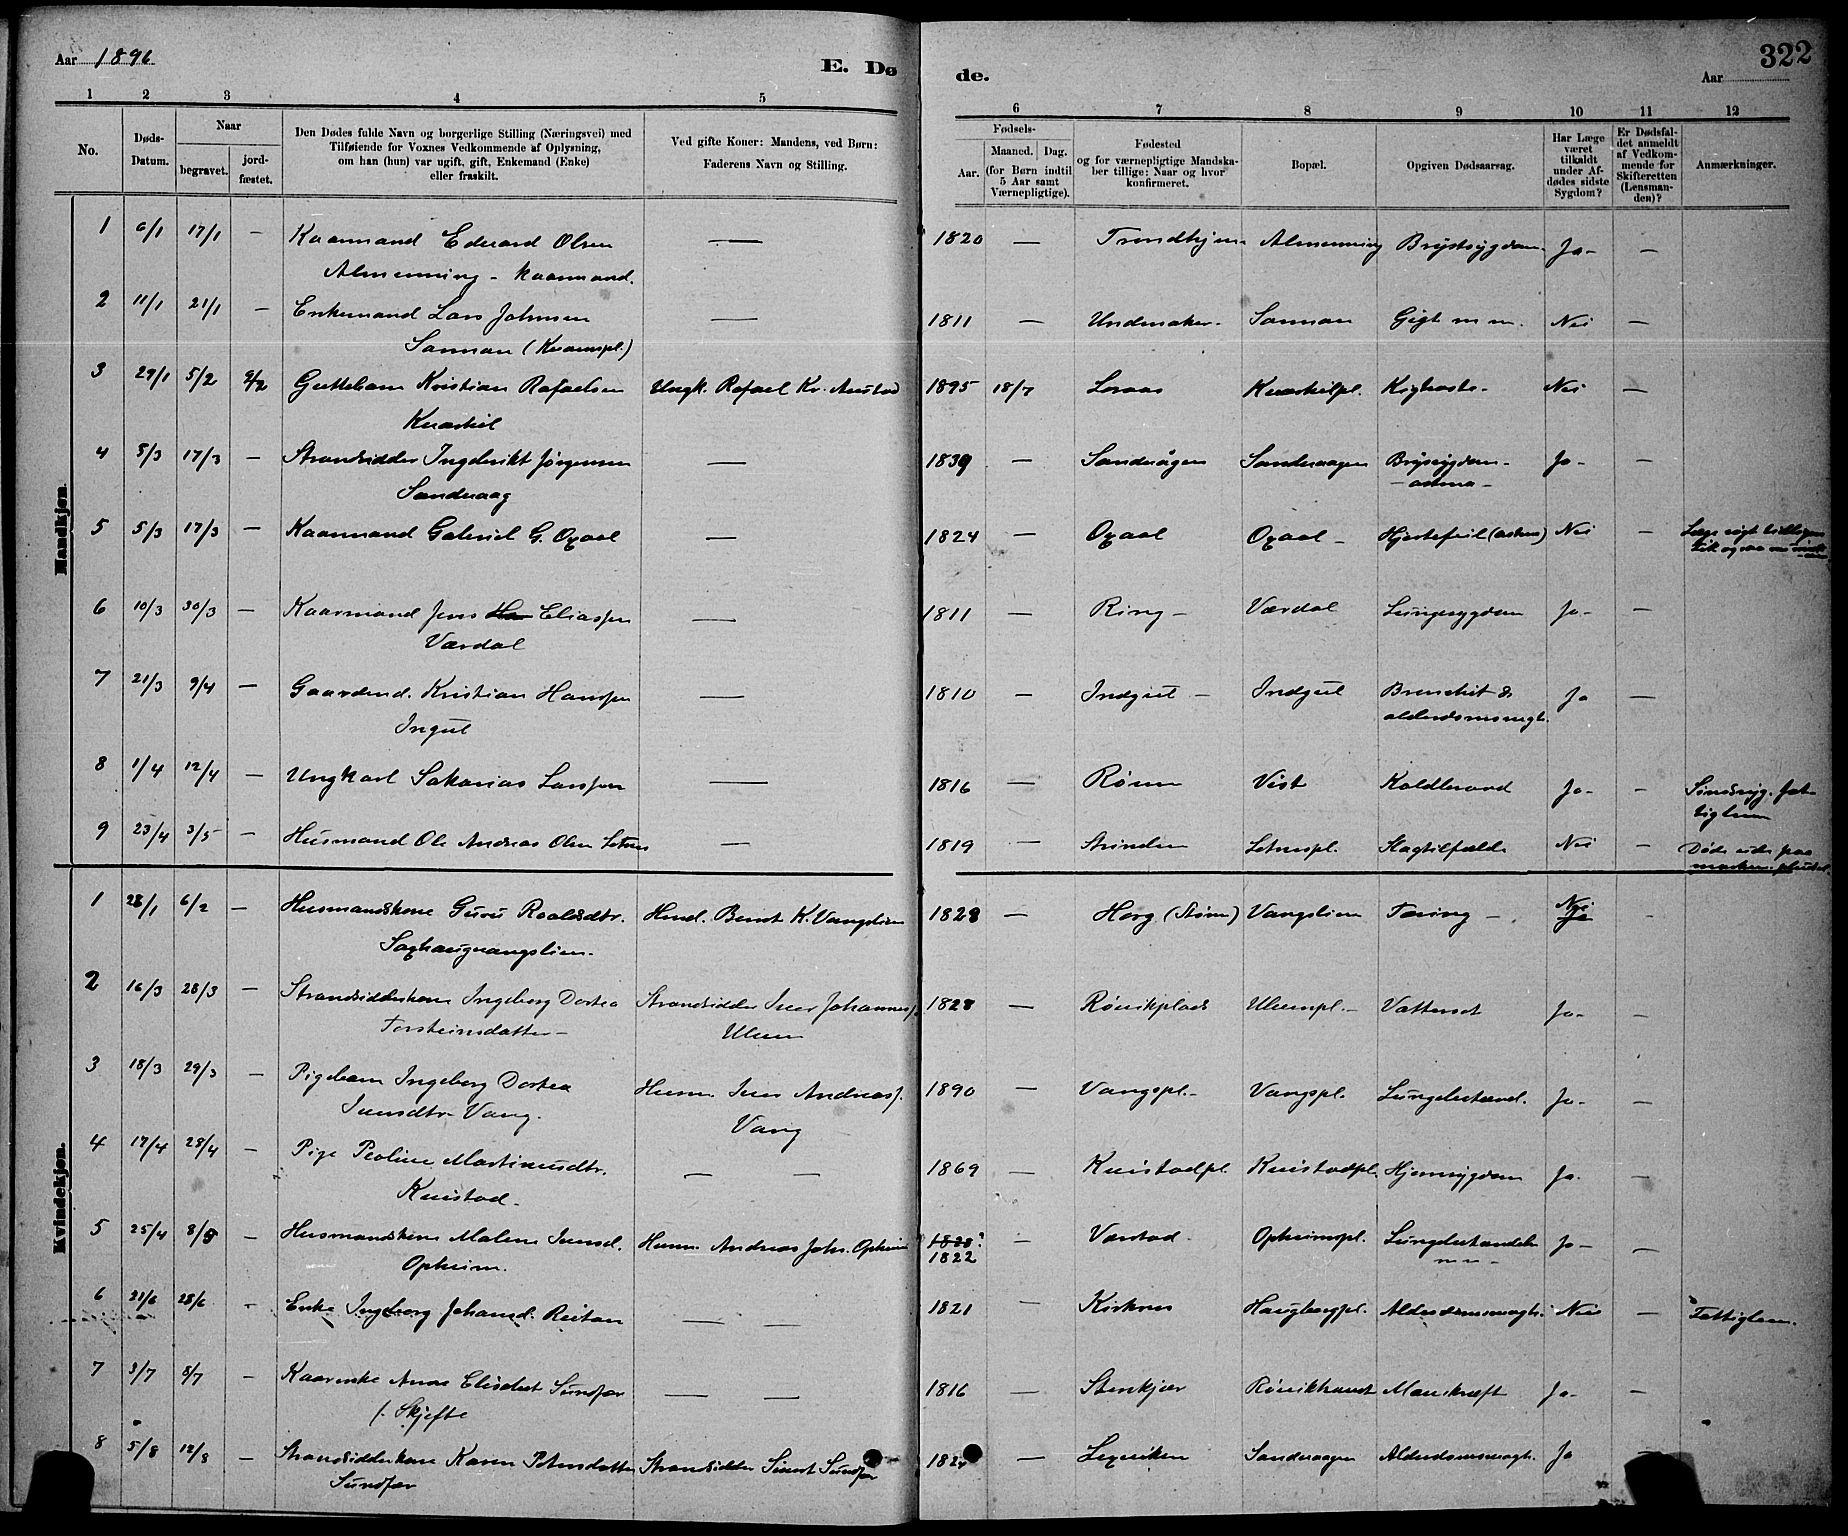 Aar 1896
E. Dø
de.
Aar
322
1 2 3 4 5 6 7 8 9 10 11 12
No.
Døds-
Datum.
Naar
begravet.
jord-
fæstet.
Den Dødes fulde Navn og borgerlige Stilling (Næringsvei) med
Tilføiende for Voxnes Vedkommende af Oplysning,
om han (hun) var ugift, gift, Enkemand (Enke)
eller fraskilt.
Ved gifte Koner: Mandens, ved Børn:
Faderens Navn og Stilling.
Fødsels-
Aar.
Maaned. Dag.
(for Børn indtil
5 Aar samt
Værnepligtige).
Fødested
og for værnepligtige Mandska-
ber tillige: Naar og hvor
konfirmeret.
Bopæl.
Opgiven Dødsaarsag.
Har Læge
været
tilkaldt
under Af-
dødes sidste
Sygdom?
Er Dødsfal-
det anmeldt
af Vedkom-
mende for
Skifteretten
(Lensman-
den)?
Anmærkninger.
Mandkjøn.
1 6/1 17/1 — Kaarmand Edvard Olsen — 1820 — Trondhjem Almenning Brystsygdom Ja —
Almenning - Kaarmand.
2 11/1 21/1 — Enkemand Lars Johnsen — 1811 — Undersaker Sannan Gigt m m. Nei —
Sannan (Kvamspl.)
3 29/1 5/2 9/2 Guttebarn Kristian Rafaelsen Ungk. Rafael Kr. Austad 1895 18/7 Loraas Kighoste Nei —
4 8/3 17/3 — Strandsidder Ingebrikt Jørgensen — 1839 — Sandvågen Sandvaagen Brystsygdom Ja —
Sandvaag - astma -
5 5/3 17/3 — Kaarmand Gabriel G. Oxaal — 1824 — Oxaal Oxaal Hjertefeil (astma) Nei —
6 10/3 30/3 — Kaarmand Jens Eliassen — 1811 — Ring Værdal Lungesygdom Ja —
Værdal
7 21/3 9/4 — Gaardmd. Kristian Hanssen — 1810 — Indgul Indgul Bronchit & Ja —
Ingul alderdomssvagh.
8 1/4 12/4 — Ungkarl Sakarias Larssen — 1816 — Vist Koldbrand Ja — Sindssyg. Fat-
tiglem
9 23/4 3/5 — Husmand Ole Andreas Olsen Letnes — 1819 — Strinden Letnespl. Slagtilfælde Nei — Døde ude paa
marken pludsel.
Kvindekjøn.
1 28/1 6/2 — Husmandskone Guru Roaldsdtr. Husmd. Bernt K. Vangslien 1828 — Horg (Støren) Vangslien Tæring — Nei —
Saxhaugvangslien.
2 16/3 28/3 — Strandsidderkone Ingeborg Dortea Strandsidder Iver Johannes. 1828 — Røvikplads Ulvenpl. Vattersot Ja —
Torsteinsdatter — Ulven
3 18/3 29/3 — Pigebarn Ingeborg Dortea Husm. Iver Andreas. 1890 — Vangspl. Vangspl. Lungebetænd. Ja —
Iversdtr. Vang. Vang
4 17/4 28/4 Pige Pauline Martinusdtr. — — 1869 — Kvistadpl. Kvistadpl. Hjernesygdom Ja —
Kvistad
5 25/4 8/5 Husmandskone Malene Iversd. Husm. Andreas Joh. Opheim 1828? — Værstad Opheimspl. Lungebetændelse Ja —
Opheim. 1822 m m -
6 21/6 28/6 - Enke Ingeborg Johansd. Reitan — — 1821 — Kirknes Haugbergpl. Alderdomssvagh. Nei — Fattiglem.
7 3/7 8/7 - Kaarenke Anne Elisabet Sundfær — — 1816 — Stenkjær Røvikstrand Mavekræft Ja —
f. Skjefte
8 5/8 12/8 — Strandsidderkone Karen Petersdatter Strandsidder Sivert Sundfær — Lexviken Sandvaagen Alderdomssvagh. Ja —
Sundfær